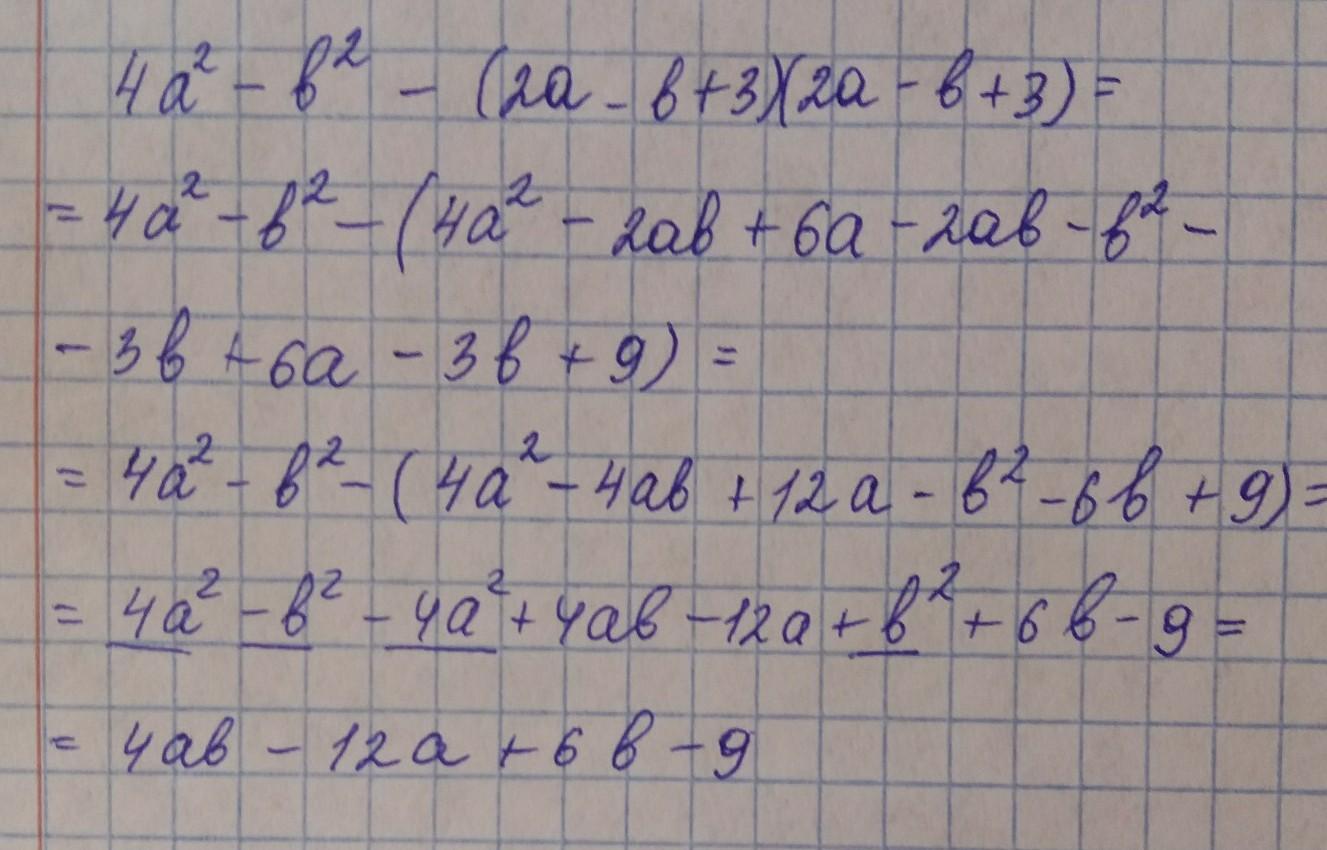 4a² - b² - (2a - b + 3)(2a - b + 3) =
= 4a² - b² - (4a² - 2ab + 6a - 2ab - b² -
- 3b + 6a - 3b + 9) =
= 4a² - b² - (4a² - 4ab + 12a - b² - 6b + 9) =
= 4a² - b² - 4a² + 4ab - 12a + b² + 6b - 9 =
= 4ab - 12a + 6b - 9